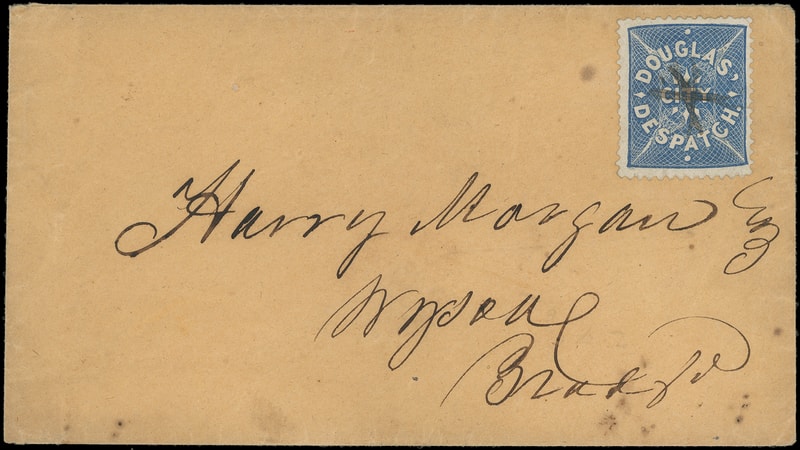 DOUGLAS'
CITY
DESPATCH.
Harry Morgan Esq
Broad St